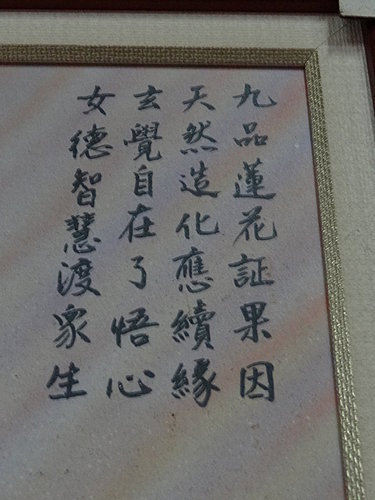 九品蓮花証果因
天然造化應續緣
玄覺自在了悟心
女德智慧渡眾生